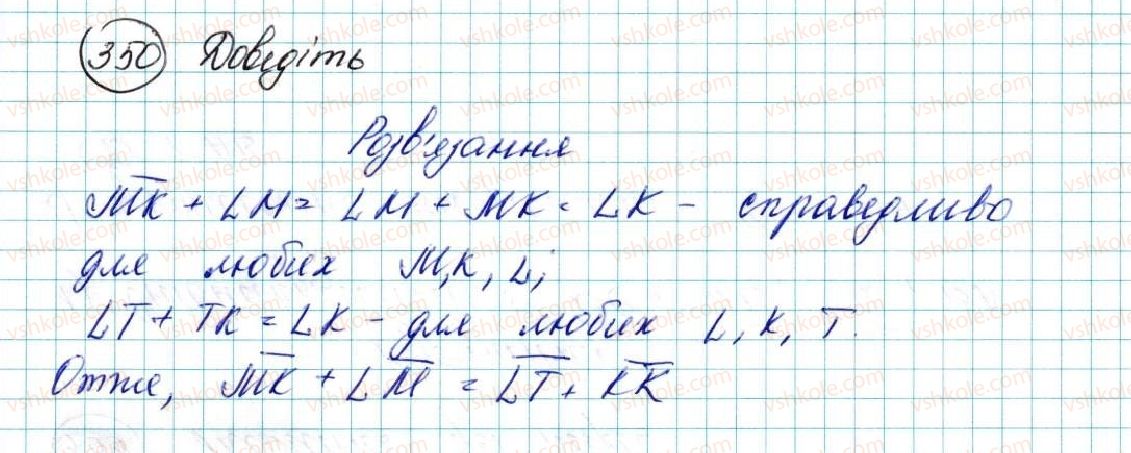 350 Доведіть
Розв'язання
M̅K̅ + LM = LM + MK = LK - справедливо
для любих M, K, L;
LT + TK = LK - для любих L, K, T.
Отже, M̅K̅ + LM̅ = L̅T̅ + K̅K̅